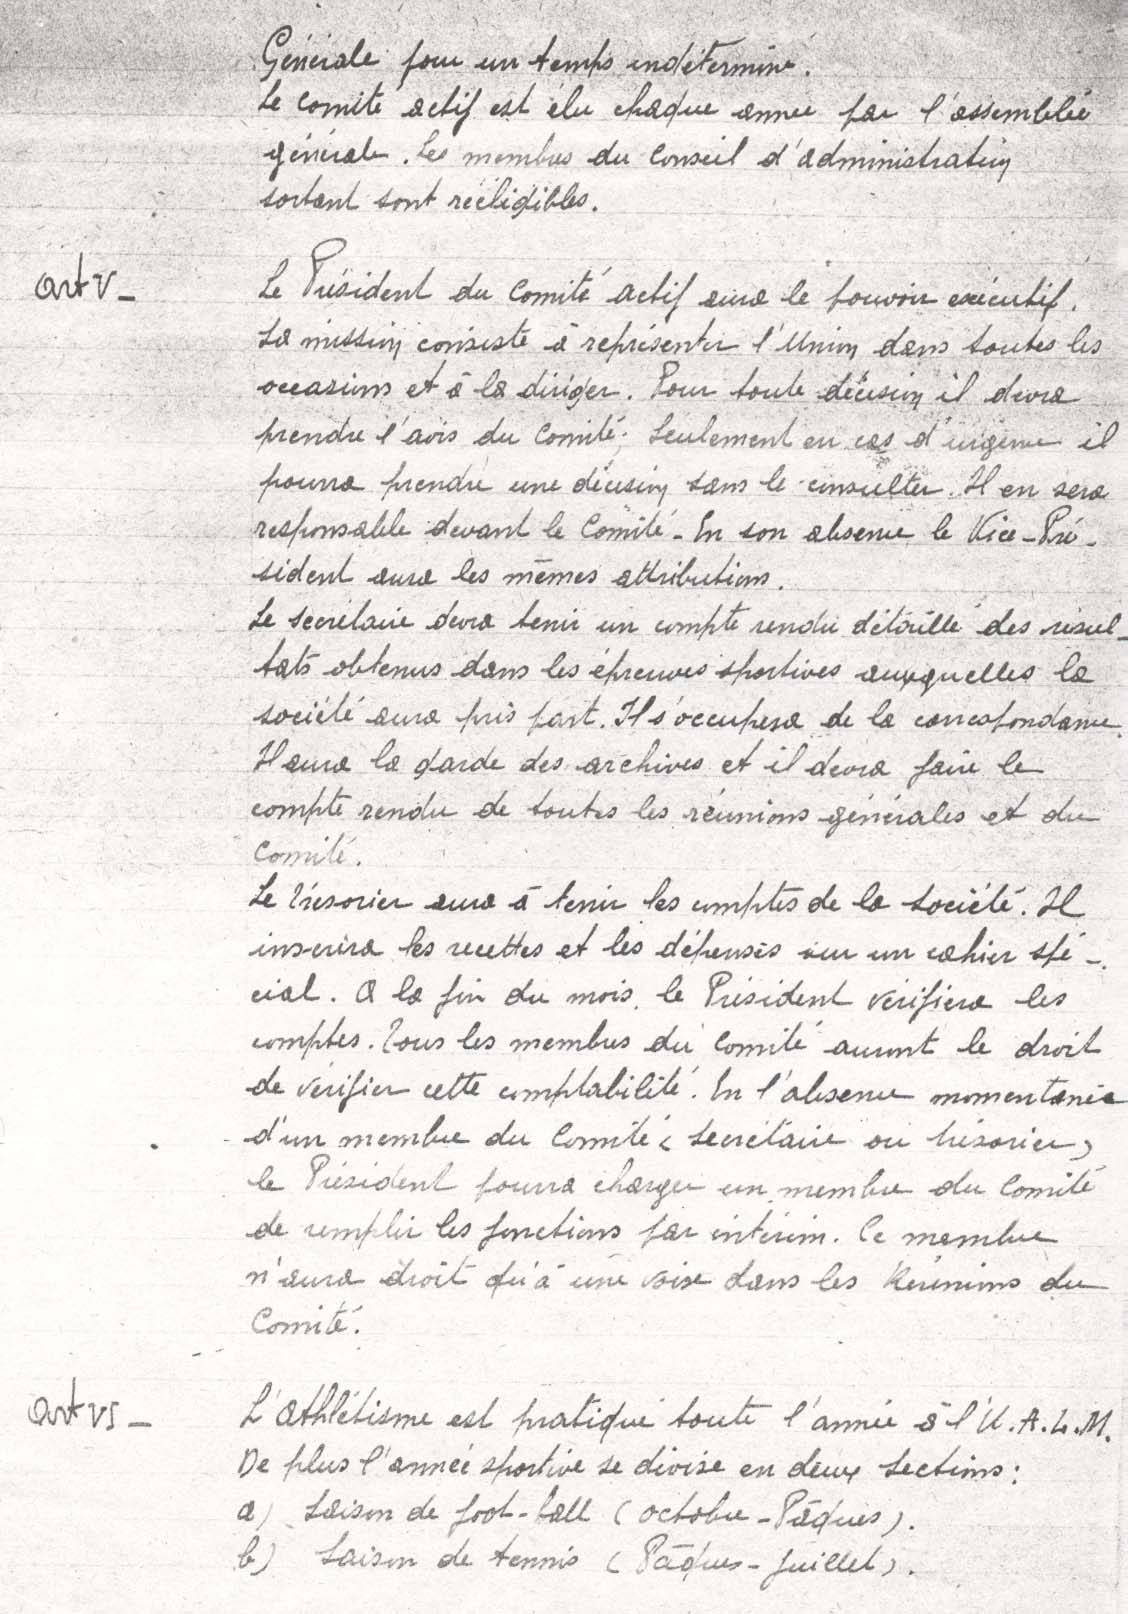 Générale pour un temps indéterminé.
Le Comité actif est élu chaque année par l'assemblée
générale. Les membres du Conseil d'administration
sortant sont rééligibles.
Art V – Le Président du Comité actif aura le pouvoir exécutif.
Sa mission consiste à représenter l'Union dans toutes les
occasions et à la diriger. Pour toute décision il devra
prendre l'avis du Comité. Seulement en cas d'urgence il
pourra prendre une décision sans le consulter. Il en sera
responsable devant le Comité – En son absence le Vice-Pré-
sident aura les mêmes attributions.
Le secrétaire devra tenir un compte rendu détaillé des résul-
tats obtenus dans les épreuves sportives auxquelles la
société aura pris part. Il s'occupera de la correspondance.
Il aura la garde des archives et il devra faire le
compte rendu de toutes les réunions générales et du
Comité.
Le Trésorier aura à tenir les comptes de la Société. Il
inscrira les recettes et les dépenses sur un cahier spé-
cial. A la fin du mois, le Président vérifiera les
comptes. Tous les membres du Comité auront le droit
de vérifier cette comptabilité. En l'absence momentanée
d'un membre du Comité (secrétaire ou trésorier)
le Président pourra charger un membre du Comité
de remplir les fonctions par intérim. Ce membre
n'aura droit qu'à une voix dans les Réunions du
Comité.
Art VI – L'athlétisme est pratiqué toute l'année à l'U.A.L.M.
De plus l'année sportive se divise en deux Sections:
a) Saison de foot-ball (octobre – Pâques).
b) Saison de tennis (Pâques – Juillet).